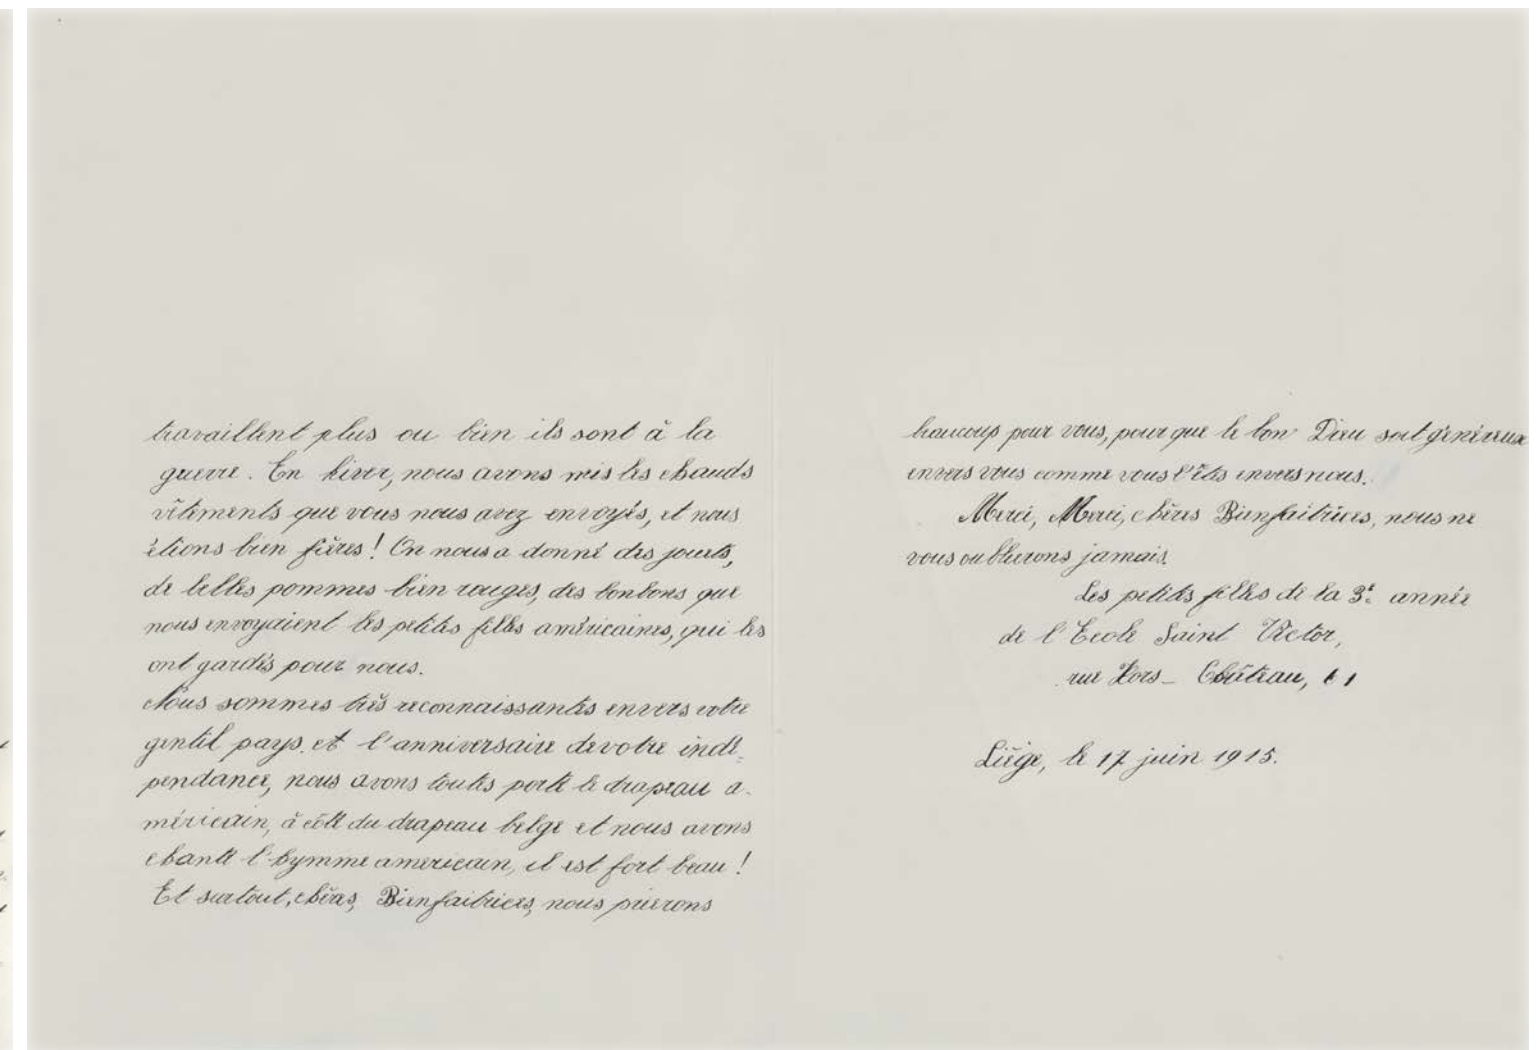 travaillent plus ou bien ils sont à la
guerre. En hiver, nous avons mis les chauds
vêtements que vous nous avez envoyés, et nous
étions bien fières! On nous a donné des jouets,
de belles pommes bien rouges, des bonbons que
nous envoyaient les petites filles américaines, qui les
ont gardés pour nous.
Nous sommes très reconnaissantes envers votre
gentil pays. et l'anniversaire de votre indé-
pendance, nous avons toutes porté le drapeau a-
méricain, à côté du drapeau belge et nous avons
chanté l'hymme americain, il est fort beau!
Et surtout, chères, Bienfaitrices, nous prierons
beaucoup pour vous, pour que le bon Dieu soit généreux
envers vous comme vous l'êtes envers nous.
Merci, Merci, chères Bienfaitrices, nous ne
vous oublierons jamais.
Les petites filles de la 3e. année
de l'Ecole Saint Victor,
rue Hors-Château, 61
Liége, le 17 juin 1915.